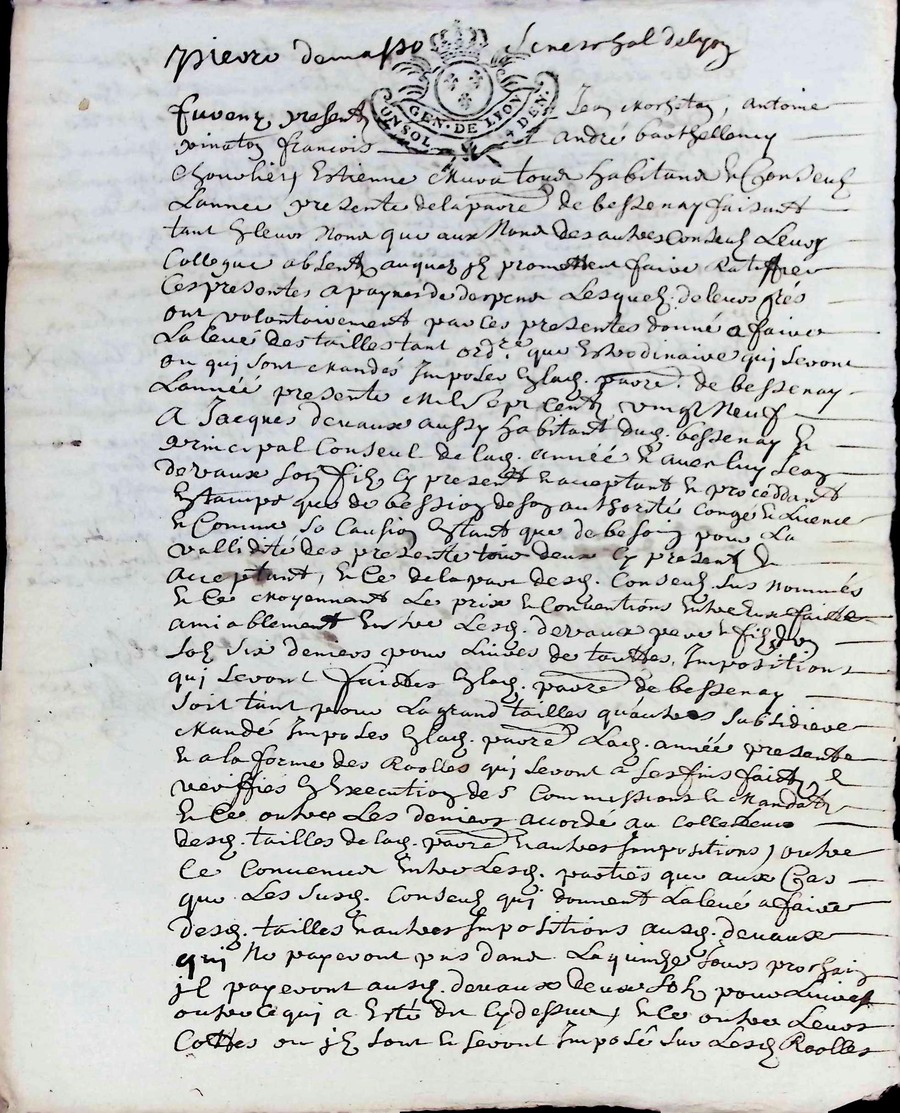 Pierre de masso Seneschal de lyon
GEN. DE LYON
CONSOL. 4 DEN.
furent presents Jean , Antoine
pinaton françois André barthellemy
Estienne habitans & Conseuls
Lannee presente de la parre de bessenay faisant
tant En leurs Noms que aux Noms des autres Conseuls Leurs
Collegue absents auquels jls promettent faire Ratiffier
Ces presentes a paynes de despens Lesquels de leurs grés
ont volontairement par ces presentes donné a faire
La levé des tailles tant ordre que Extrordinaire qui seront
ou qui sont Mandés Imposes En lad. parre de bessenay
Lannée presente Mil Sept Cents vingt Neuf
A Jacques devaux aussy habitant dud. bessenay &
principal Conseul de lad. année & avec luy Jean
devaux son fils Cy present & acceptant & procéddant
Estampt que de bessoin de son authorité Congé & Licence
& Comme Sa Caution Estant que de besoin pour La
vallidité des presente tous deux Cy presents &
acceptant, & Ce de la part desd. Conseuls sus nommés
& Ce Moyennant Le prix & Conventions Entre Eux faitte
amiablement Entre Lesd. devaux pere & fils
Sols Six deniers pour Livres de touttes Impositions
qui Seront faictes En lad. parre de bessenay
Soit tant pour La grand tailles qu'autres Subsidiere
Mandé Imposes En lad. parre Lad. année presente
& a la forme des Roolles qui seront a Ses fins faicts &
veriffiés En Execution des Commissions & Mandats
& Ce outre Les deniers accordé au Collecteurs
desd. tailles de lad. parre & autres Impositions, outre
Ce Convenus Entre Lesd. parties que aux Cas
que Les Susd. Conseuls qui donnent La levé a faire
desd. tailles & autres Impositions aud. devaux
qui No payeront pas dans La quinze Jours prochain
jls payeront aud. devaux deux Sols pour Livres
outre Ce qui a Esté dit Cy dessus, & Ce outre Leurs
Cottes ou jls sont & seront Imposé Sur Lesd. Roolles